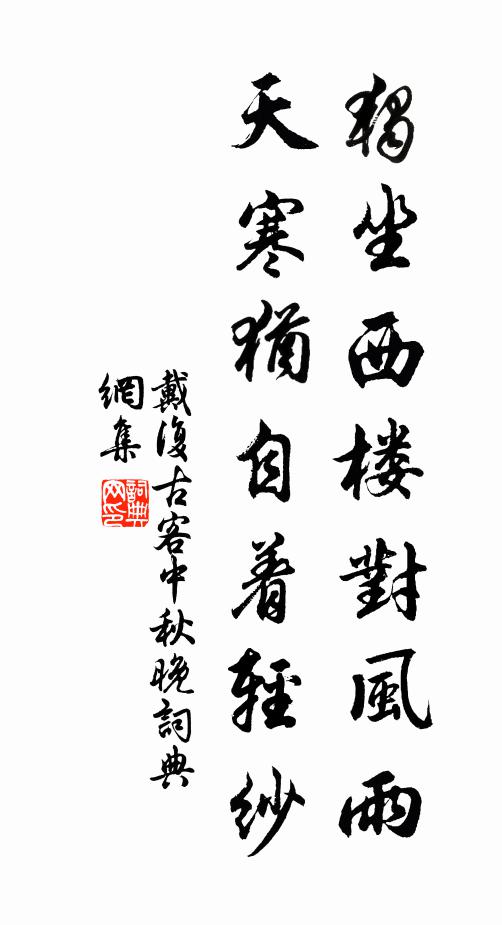 獨坐西楼對風雨
天寒猶自着輕紗
戴復古客中秋晚詞典
網集
詞典
网印